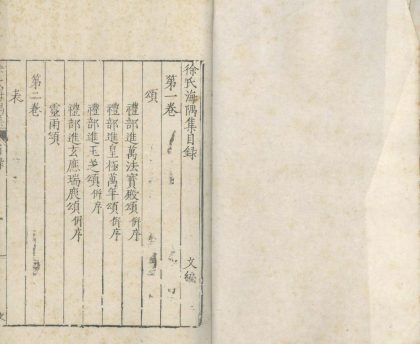 徐氏海隅集目錄
文編
第一卷
頌
禮部進萬法寶殿頌併序
禮部進皇極萬年頌併序
禮部進玉芝頌併序
禮部進玄應瑞鹿頌併序
靈雨頌
第二卷
表